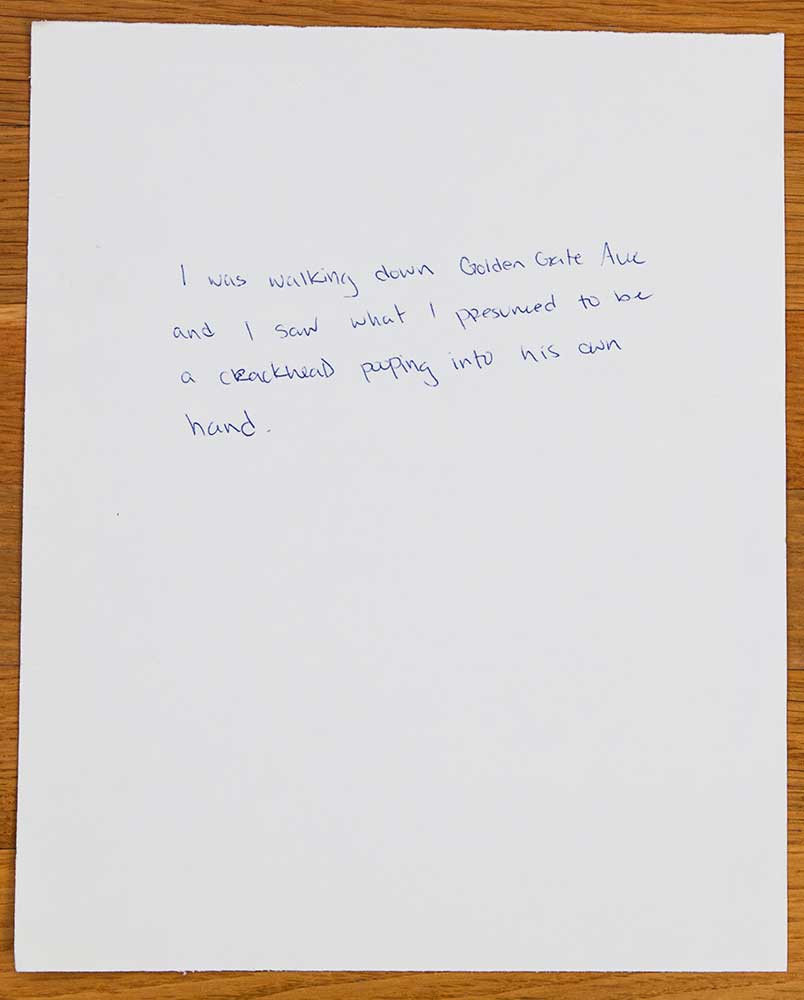 I was walking down Golden Gate Ave
and I saw what I presumed to be
a crackheaD pooping into his own
hand.